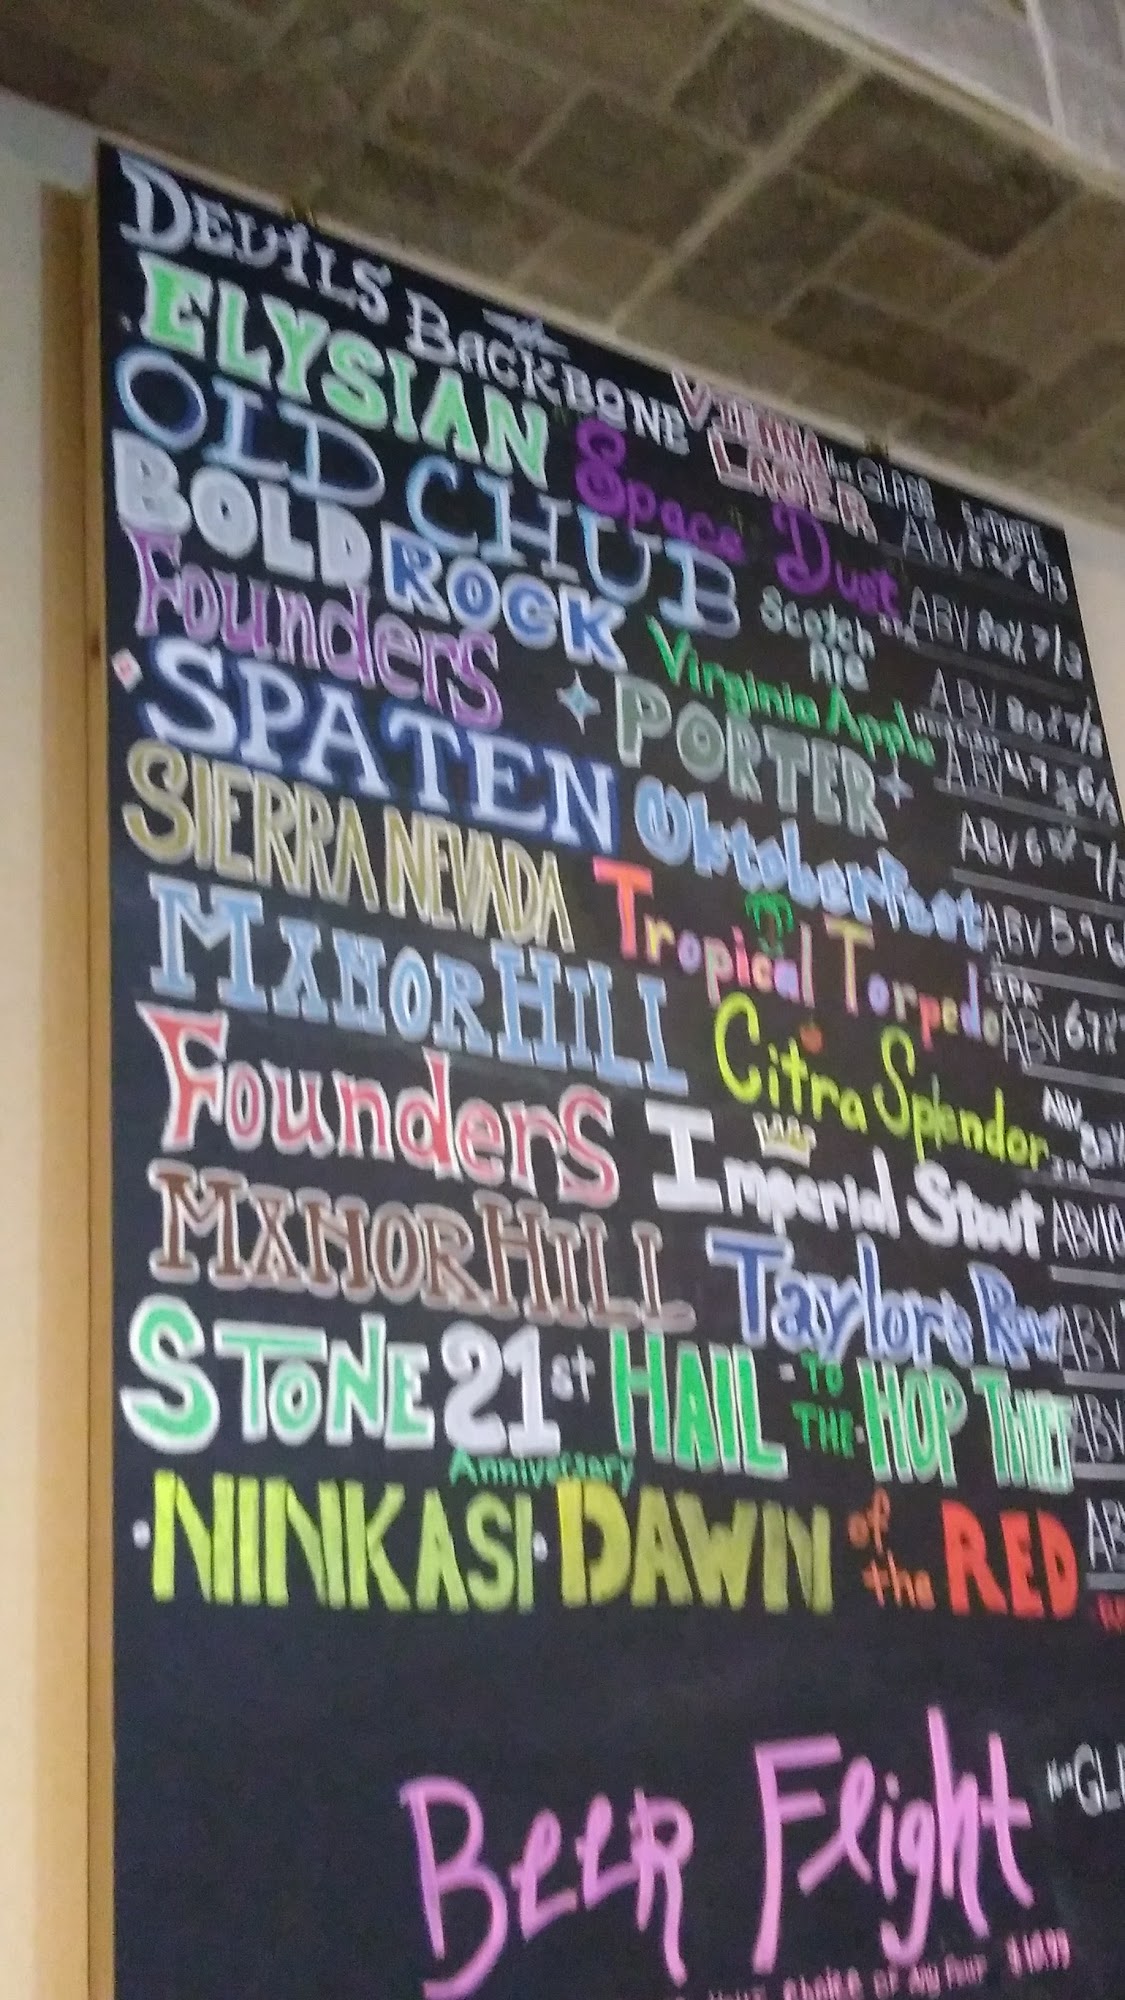 DEVILS BACKBONE VIENNA LAGER GLASS
ELYSIAN Space Dust ABV
OLD CHUB Scotch Ale ABV
BOLD ROCK Virginia Apple ABV
Founders PORTER ABV
SPATEN Oktoberfest ABV 5.9
SIERRA NEVADA Tropical Torpedo IPA ABV
MANOR HILL Citra Splendor ABV
Founders Imperial Stout ABV
MANOR HILL Taylor's Row ABV
STONE 21st Anniversary HAIL TO THE HOP THIEF ABV
NINKASI DAWN of the RED
Beer Flight
choice of any four $10.99